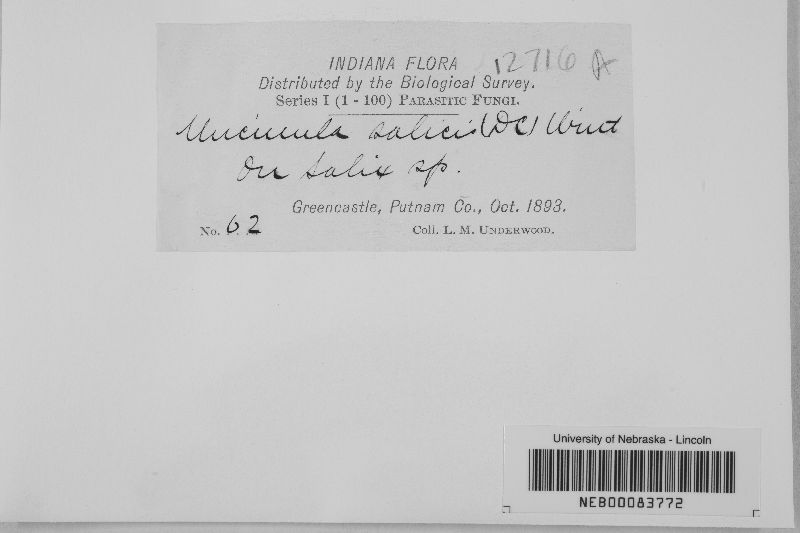 INDIANA FLORA 12716 A
Distributed by the Biological Survey.
Series I (1 - 100) PARASITIC FUNGI.
Uncinula salicis (DC) Wint
On Salix sp.
Greencastle, Putnam Co., Oct. 1893.
No. 62 Coll. L. M. UNDERWOOD.
University of Nebraska - Lincoln
NEB00083772